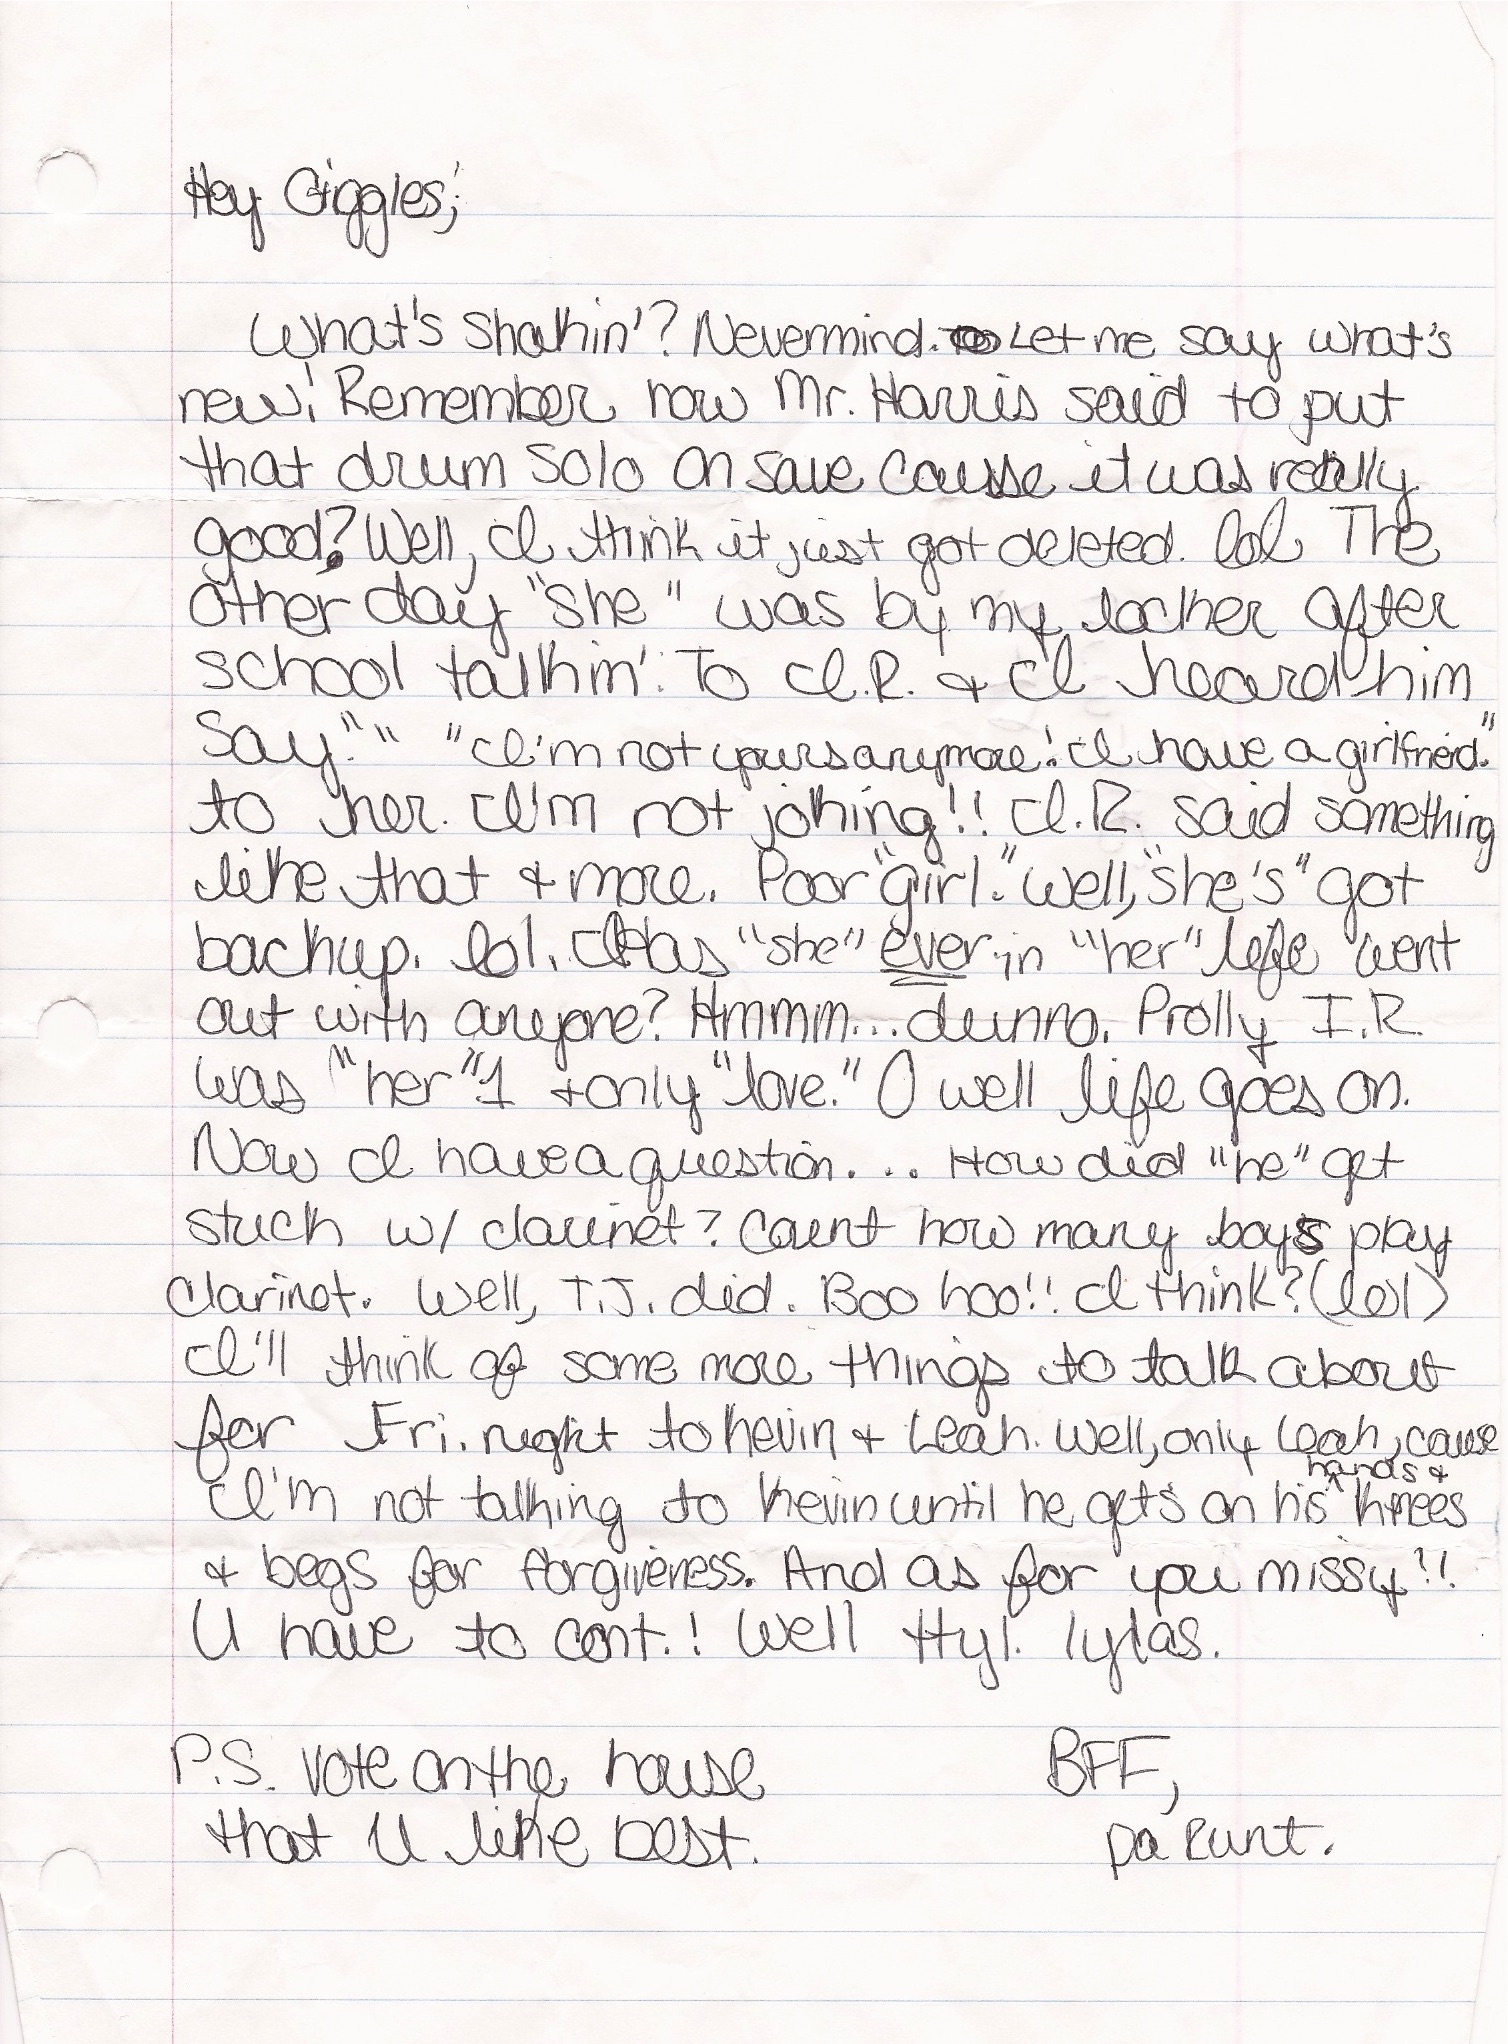 Hey Giggles;
What's shakin'? Nevermind. Let me say what's
new! Remember how Mr. Harris said to put
that drum solo on save cause it was really
good? Well, I think it just got deleted. lol The
other day "she" was by my locker after
school talkin'. To I.R. & I heard him
say "I'm not yours anymore! I have a girlfriend."
to her. I'm not joking!! I.R. said something
like that & more. Poor "girl." Well, "she's" got
backup. lol. Has "she" ever in "her" life went
out with anyone? Hmmm... dunno. Prolly I.R.
was "her" 1 & only "love." O well life goes on.
Now I have a question... How did "he" get
stuck w/ clarinet? Count how many boys play
clarinet. Well, T.J. did. Boo hoo!! I think? (lol)
I'll think of some more things to talk about
for Fri. night to Kevin & Leah. Well, only Leah, cause
I'm not talking to Kevin until he gets on his hands & knees
& begs for forgiveness. And as for you missy!!
U have to cont.! Well ttyl. lylas.
P.S. Vote on the house
that U like best.
BFF,
Da Runt.